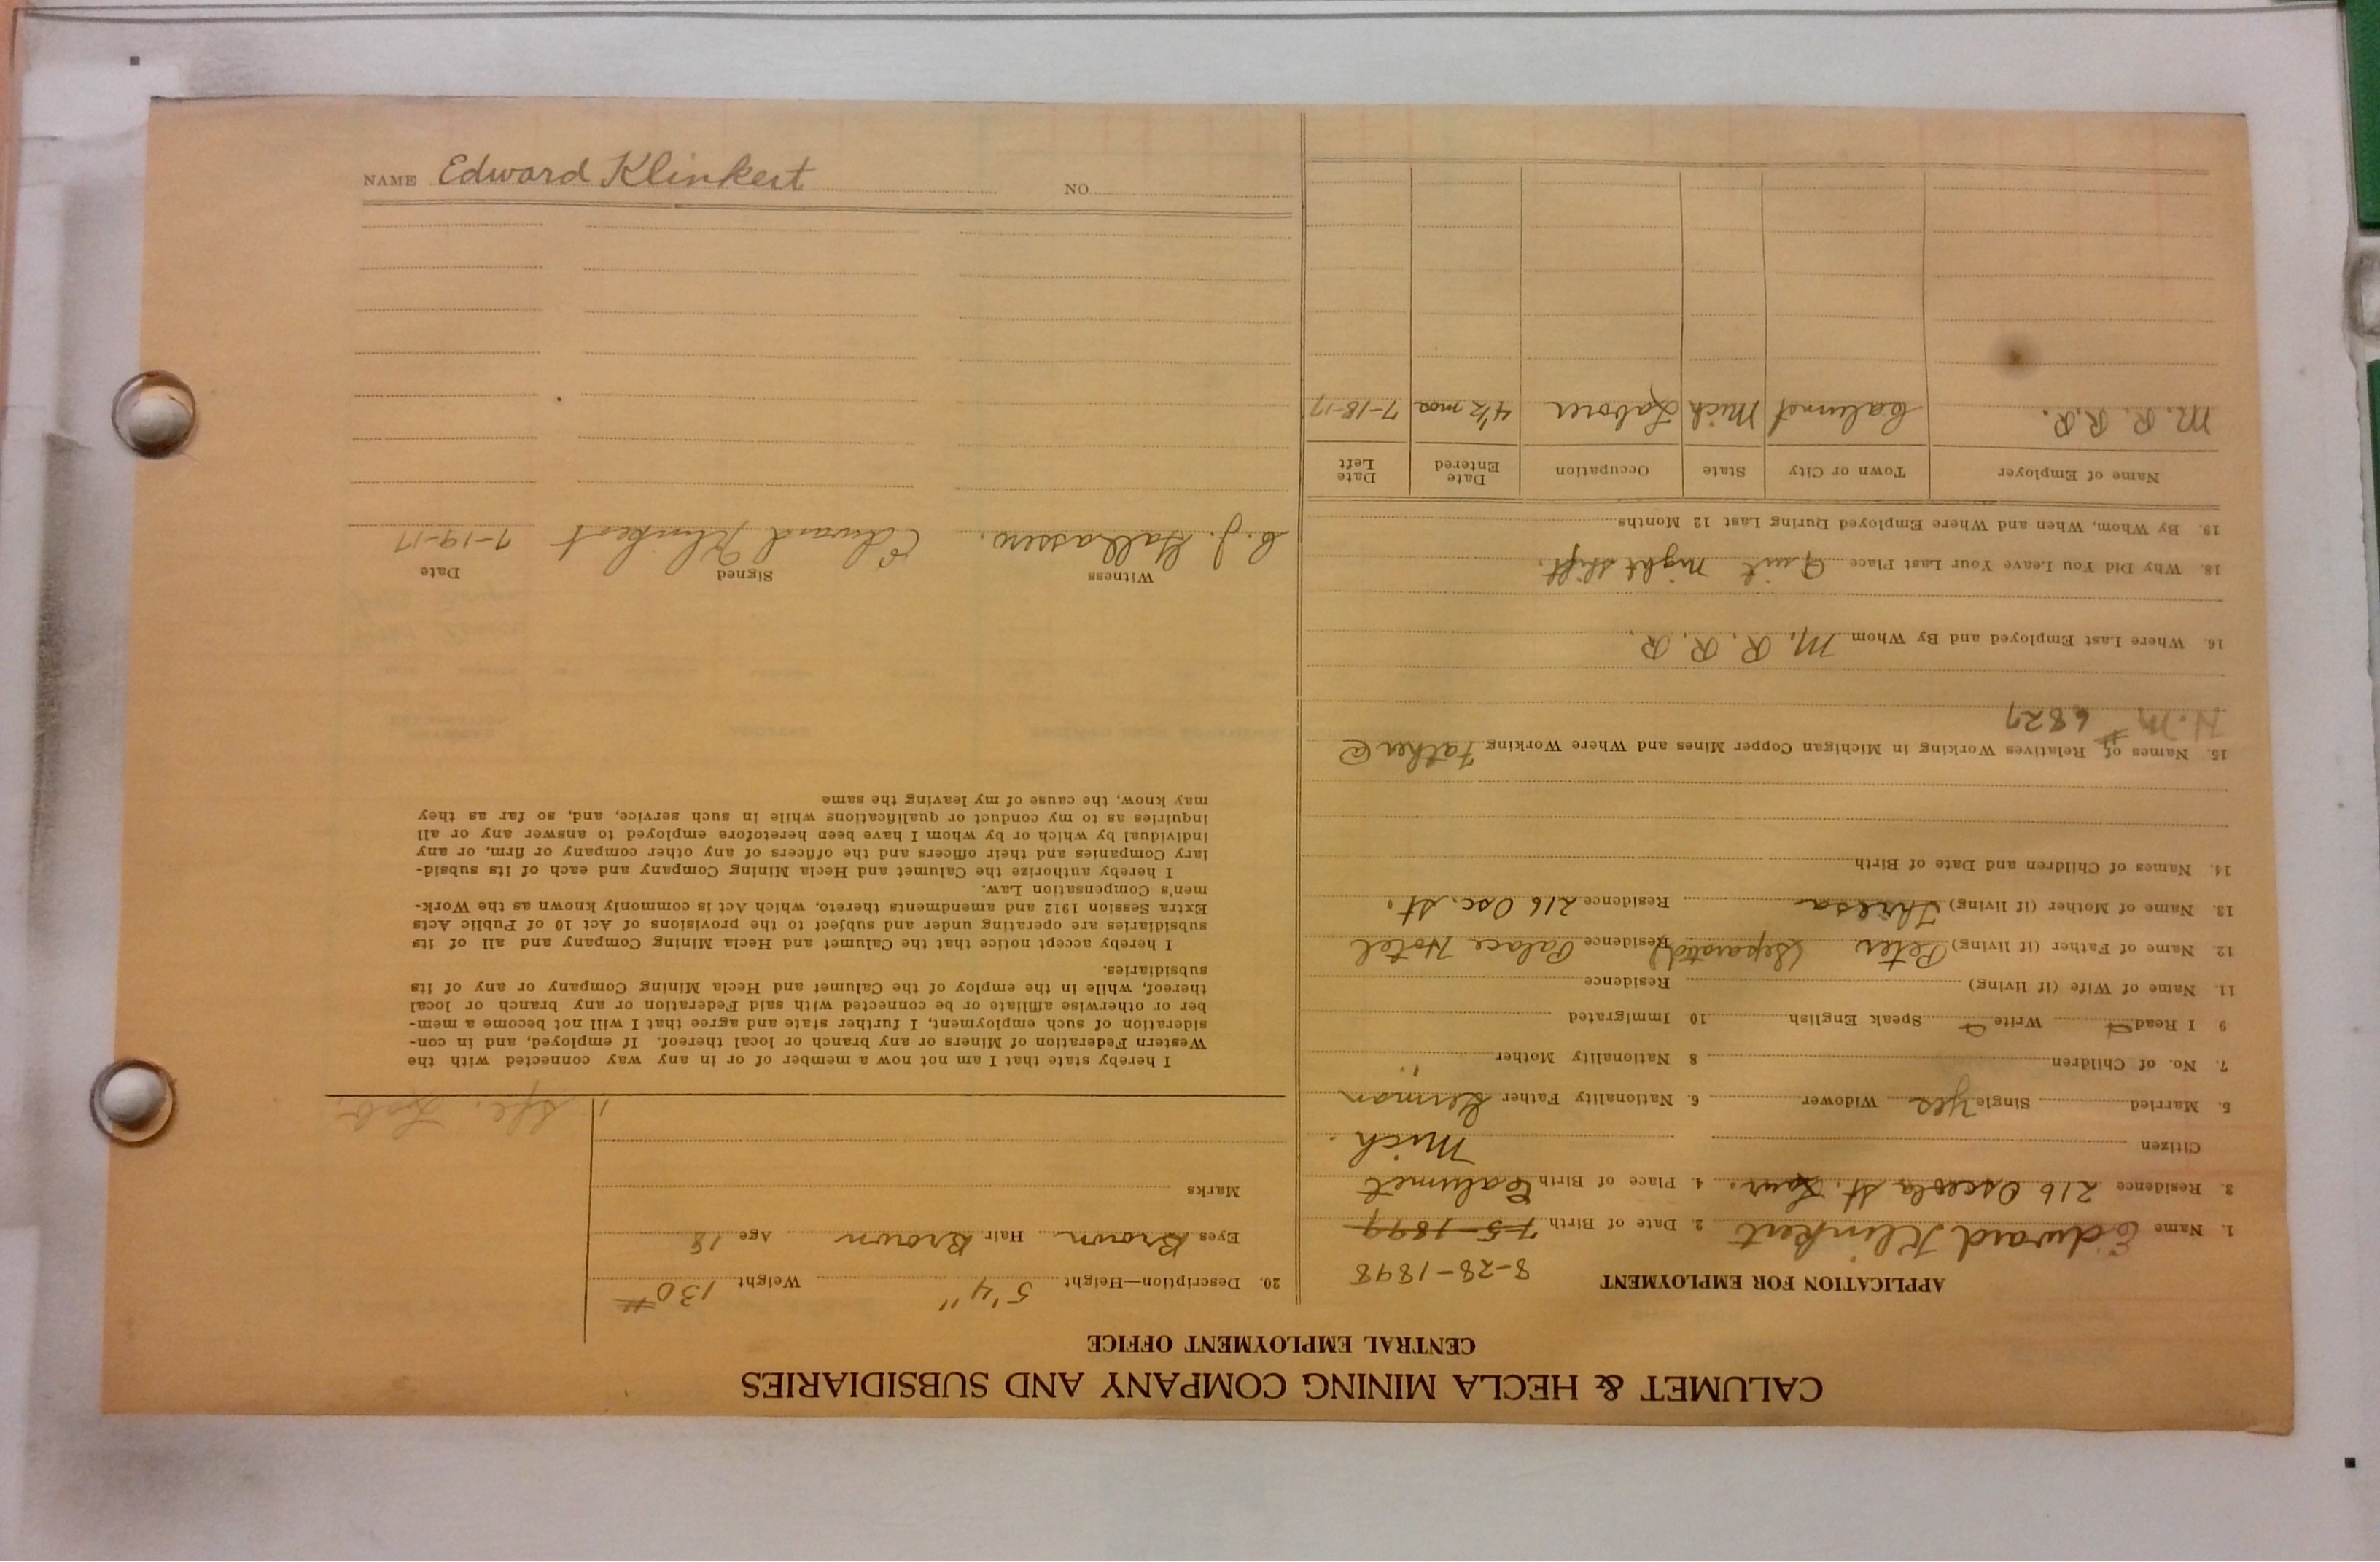 CALUMET & HECLA MINING COMPANY AND SUBSIDIARIES
CENTRAL EMPLOYMENT OFFICE
APPLICATION FOR EMPLOYMENT
8-28-1898
1. Name Edward Klinkert 2. Date of Birth 7-5-1899
3. Residence 216 Osceola St. Laur. 4. Place of Birth Calumet
Citizen Mich.
5. Married Single Yes Widower 6. Nationality Father German
7. No. of Children 8 Nationality Mother "
9 I Read Write Speak English 10 Immigrated
11. Name of Wife (if living) Residence
12. Name of Father (if living) Peter (Separated) Residence Palace Hotel
13. Name of Mother (if living) Theresa Residence 216 Osc. St.
14. Names of Children and Date of Birth
15. Names of Relatives Working in Michigan Copper Mines and Where Working Father @
H.M # 6827
16. Where Last Employed and By Whom M. R. R. R.
18. Why Did You Leave Your Last Place Quit night shift.
19. By Whom, When and Where Employed During Last 12 Months
Name of Employer Town or City State Occupation Date Entered Date Left
M. R. R.R. Calumet Mich Laborer 4½ mos 7-18-17
20. Description—Height 5'4" Weight 130 #
Eyes Brown Hair Brown Age 18
Marks
Lab.
I hereby state that I am not now a member of or in any way connected with the
Western Federation of Miners or any branch or local thereof. If employed, and in con-
sideration of such employment, I further state and agree that I will not become a mem-
ber or otherwise affiliate or be connected with said Federation or any branch or local
thereof, while in the employ of the Calumet and Hecla Mining Company or any of its
subsidiaries.
I hereby accept notice that the Calumet and Hecla Mining Company and all of its
subsidiaries are operating under and subject to the provisions of Act 10 of Public Acts
Extra Session 1912 and amendments thereto, which Act is commonly known as the Work-
men's Compensation Law.
I hereby authorize the Calumet and Hecla Mining Company and each of its subsid-
iary Companies and their officers and the officers of any other company or firm, or any
individual by which or by whom I have been heretofore employed to answer any or all
inquiries as to my conduct or qualifications while in such service, and, so far as they
may know, the cause of my leaving the same
Witness Signed Date
C. J. Edward Klinkert 7-19-17
NAME Edward Klinkert NO.